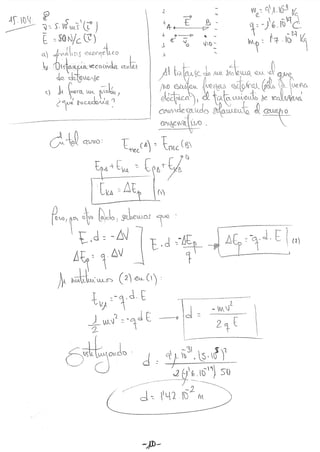 15.104
v = 5·10⁵ m s⁻¹ (i)
E = 50 N/C (i)
a) Análisis energético
b) Distancia recorrida antes de detenerse
c) Si fuera un protón, ¿qué sucedería?
E
A B
e⁻ v₀ v=0
me = 9'1·10⁻³¹ Kg
q = -1'6·10⁻¹⁹ C
mp = 1'7·10⁻²⁷ Kg
Al tratarse de un sistema en el que
no existen fuerzas externas (sólo la fuerza
eléctrica), el tratamiento se realizará
considerando solamente el campo
conservativo.
Así tal como: Emec(A) = Emec(B)
EpA + EkA = EpB + EkB 0
EkA = ΔEp (1)
Pero, por otro lado, sabemos que:
E·d = -ΔV
ΔEp = q·ΔV
E·d = -ΔEp/q → ΔEp = -q·d·E (2)
Si sustituimos (2) en (1):
EkA = -q·d·E
1/2 mv² = -qdE → d = -mv²/2qE
Sustituyendo: d = 9'1·10⁻³¹·(5·10⁵)²/2·(1'6·10⁻¹⁹)·50
d = 1'42·10⁻² m
-10-